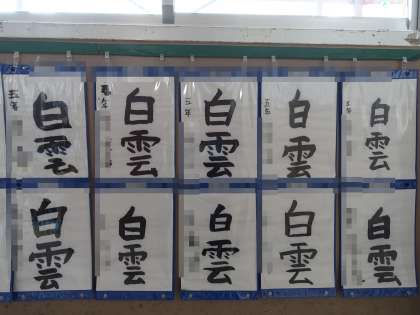 五年
白雲
五年
白雲
五年
白雲
五年
白雲
五年
白雲
白雲
白雲
白雲
白雲
白雲